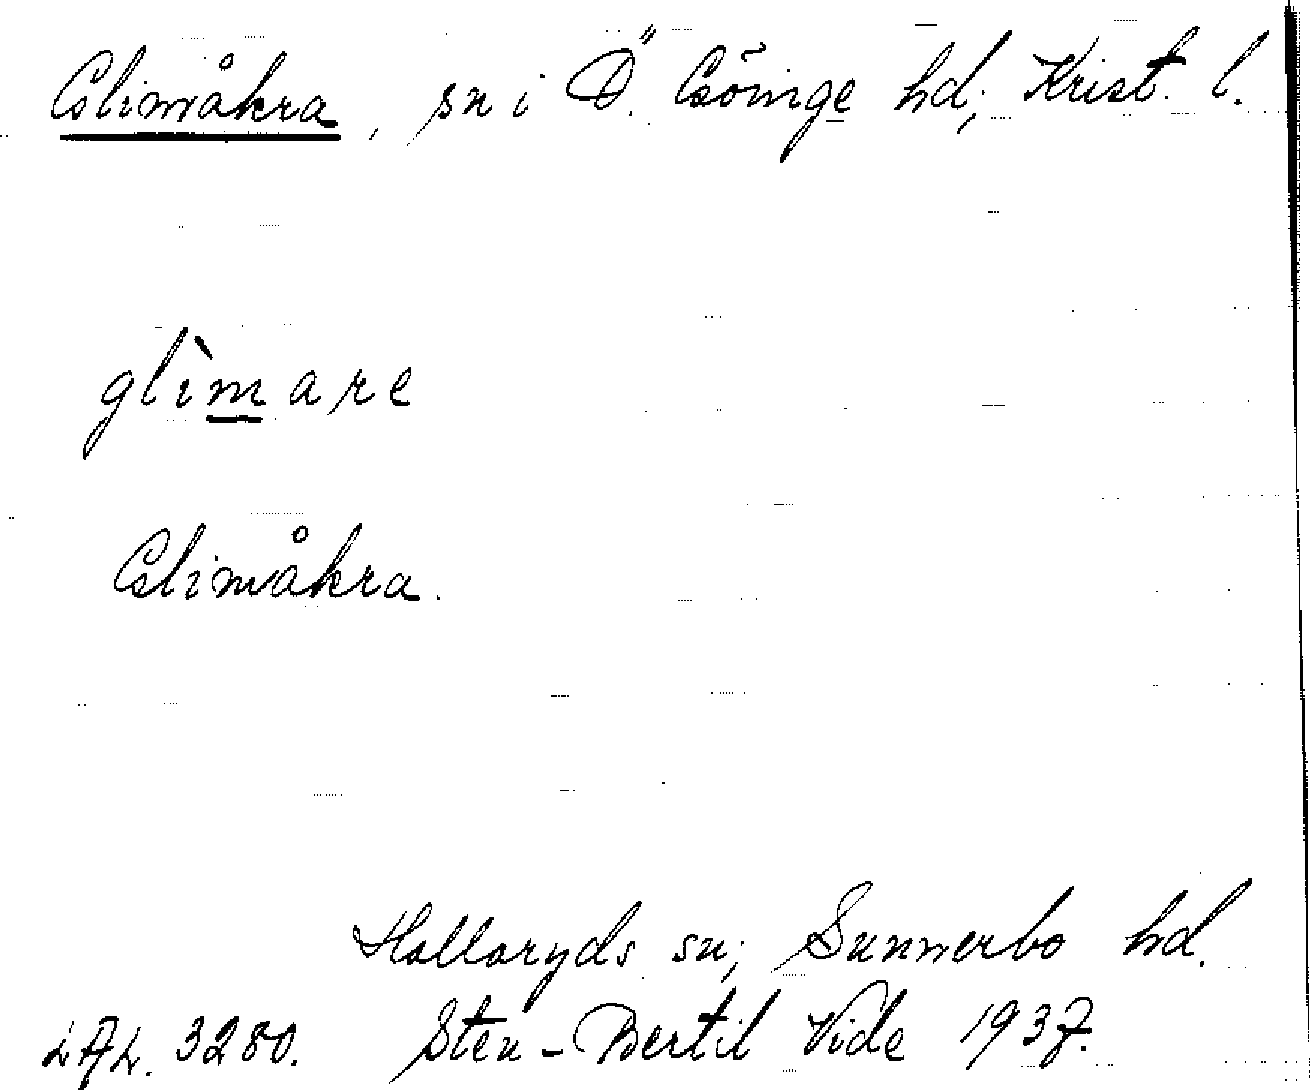 Glimåkra, sn i Ö. Göinge hd; Krist. l.
glìmare
Glimåkra.
Hallaryds sn; Sunnerbo hd.
LAL. 3280. Sten-Bertil Vide 1937.